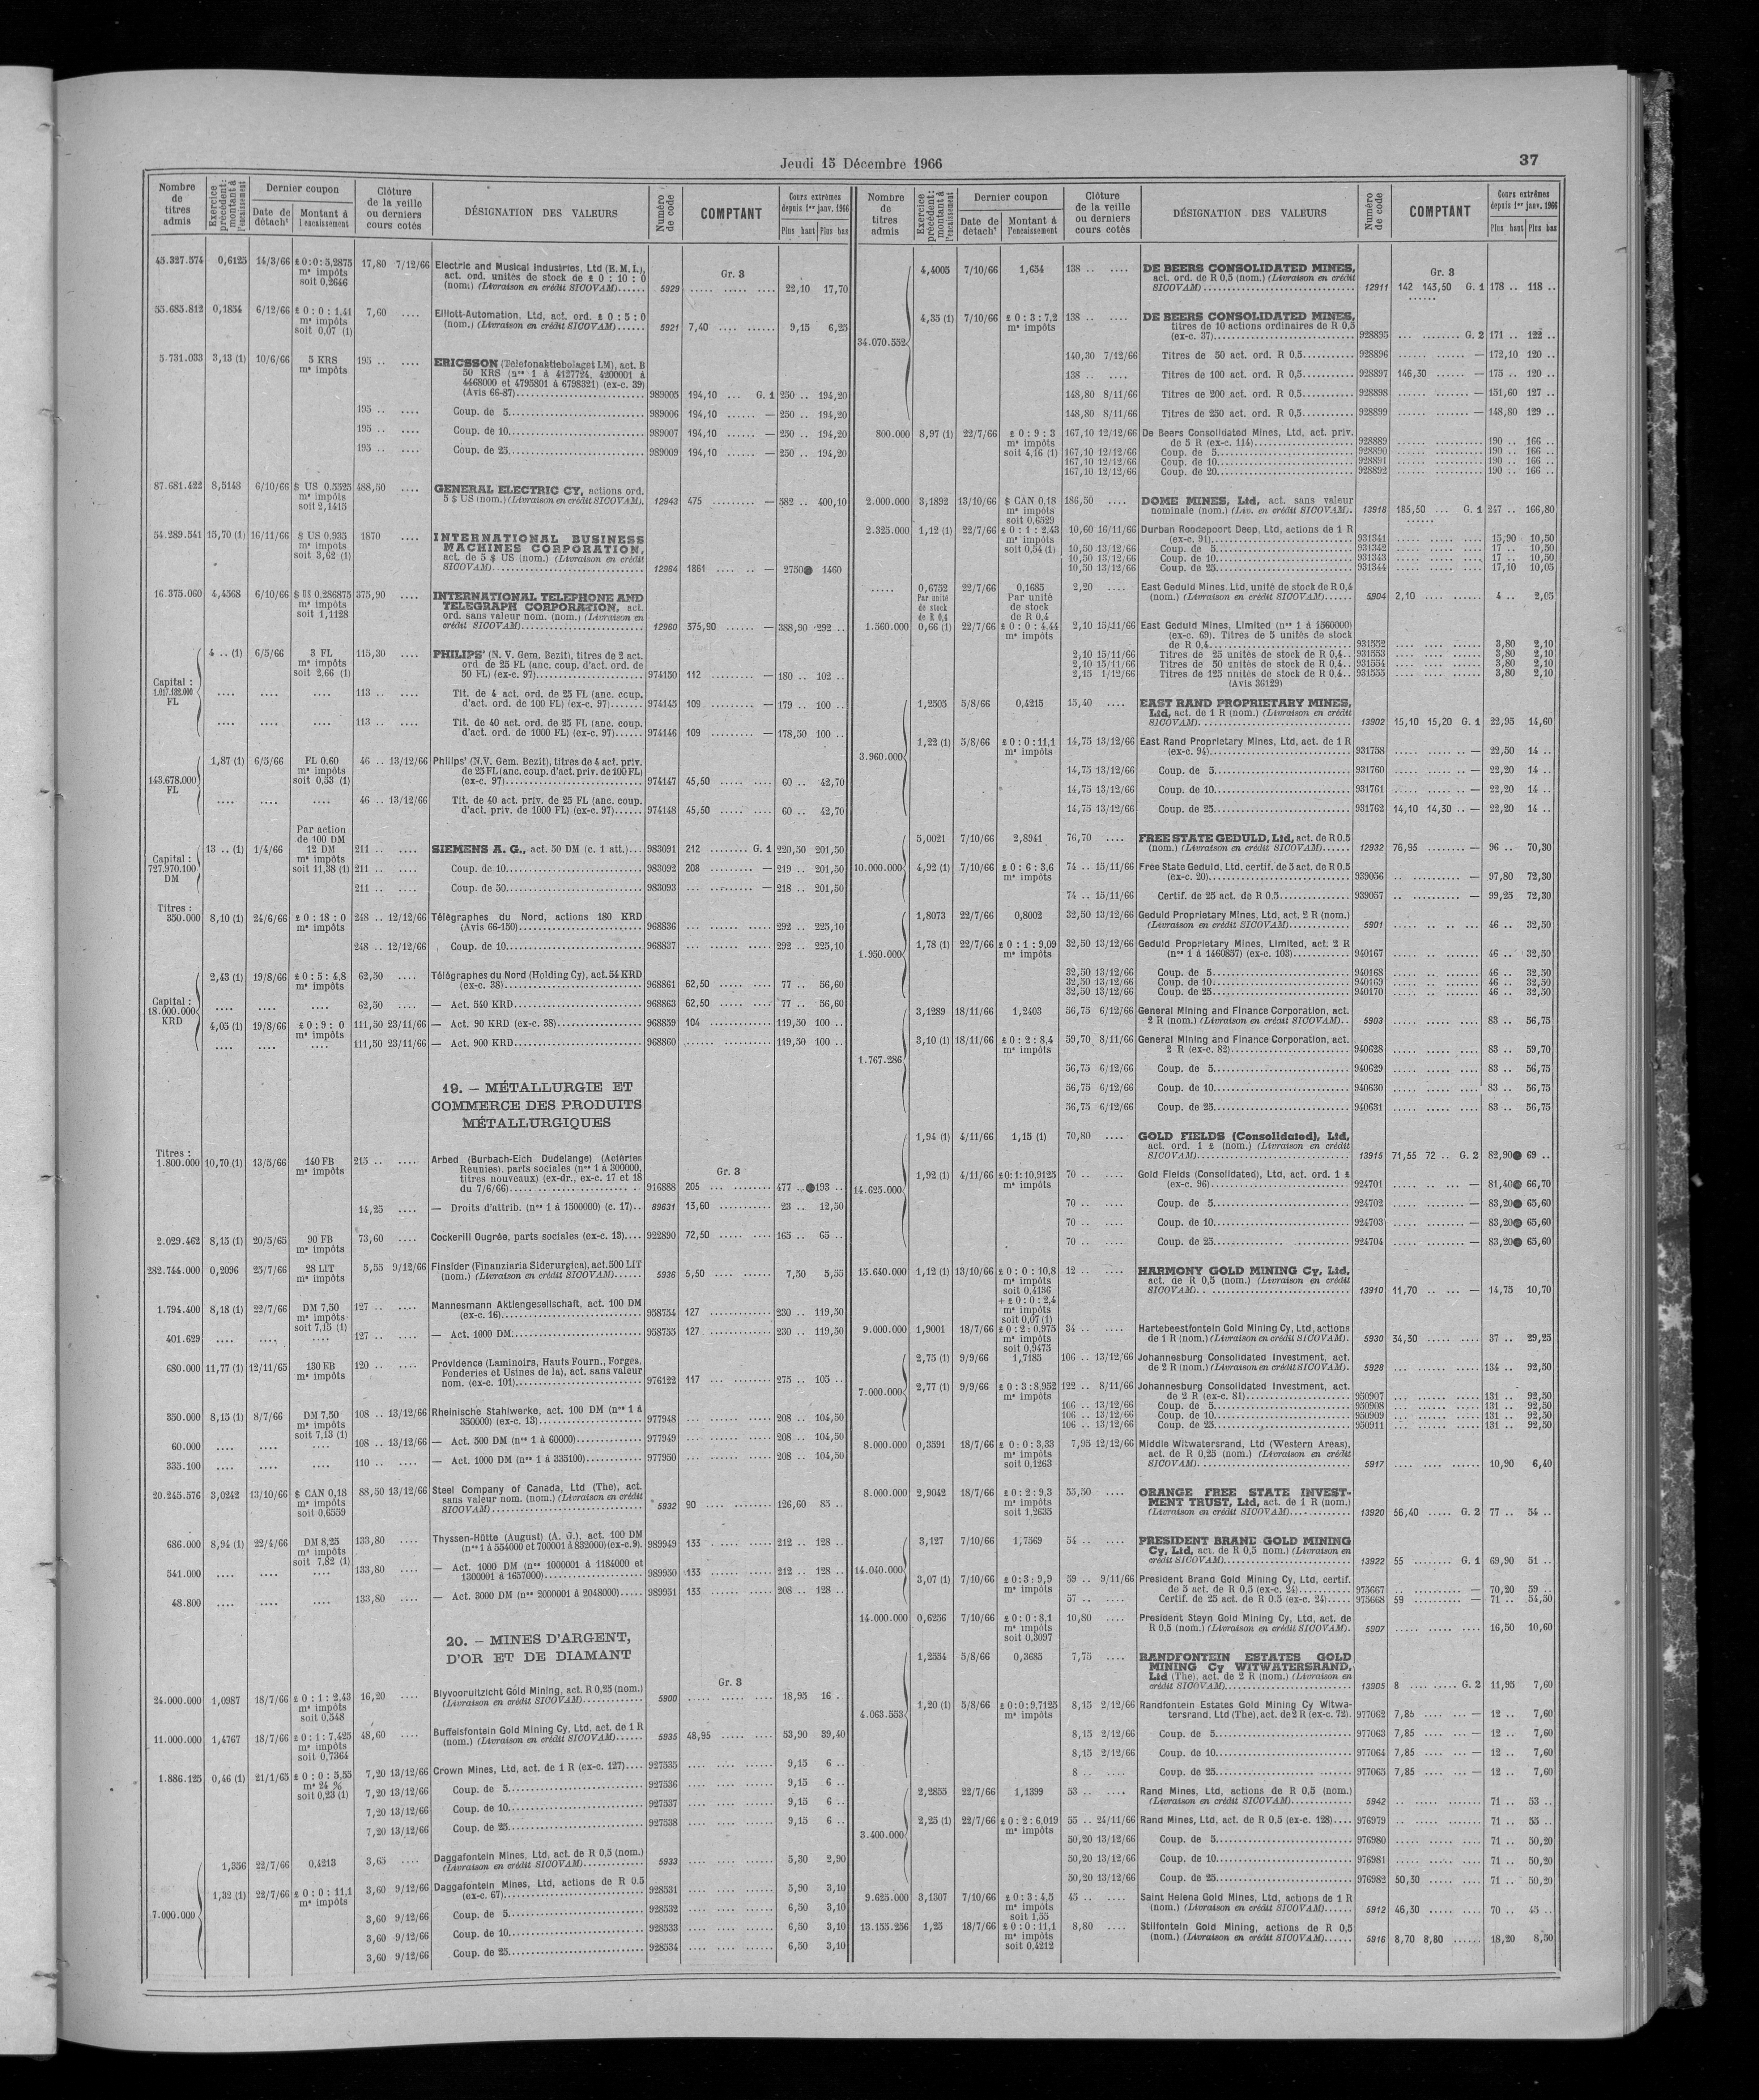 Jeudi 15 Décembre 1966
37
Nombre de titres admis
Exercice précédent: montant à l'encaissement
Dernier coupon
Date de détacht
Montant à l'encaissement
Clôture de la veille ou derniers cours cotés
DÉSIGNATION DES VALEURS
Numéro de code
COMPTANT
Cours extrêmes depuis 1er janv. 1966
Plus haut Plus bas
45.327.574 0,6125 14/3/66 £ 0:0:5,2875 17,80 7/12/66 Electric and Musical Industries, Ltd (E.M.I.),
mes impôts act. ord. unités de stock de £ 0 : 10 : 0 Gr. 3
soit 0,2646 (nom.) (Livraison en crédit SICOVAM)...... 5929 22,10 17,70
55.685.812 0,1854 6/12/66 £ 0 : 0 : 1,41 7,60 .... Elliott-Automation, Ltd, act. ord. £ 0 : 5 : 0
mes impôts (nom.) (Livraison en crédit SICOVAM)...... 5921 7,40 .... ...... 9,15 6,25
soit 0,07 (1)
5.731.033 3,13 (1) 10/6/66 5 KRS 195 .. .... ERICSSON (Telefonaktiebolaget LM), act. B
mes impôts 50 KRS (nos 1 à 4127724, 4200001 à
4468000 et 4795801 à 6798321) (ex-c. 39)
(Avis 66-87) 989005 194,10 ... G. 1 250 .. 194,20
195 .. .... Coup. de 5 989006 194,10 ...... — 250 .. 194,20
195 .. .... Coup. de 10 989007 194,10 ...... — 250 .. 194,20
195 .. .... Coup. de 25 989009 194,10 ...... — 250 .. 194,20
87.681.422 8,5148 6/10/66 $ US 0,5525 488,50 .... GENERAL ELECTRIC CY, actions ord.
mes impôts 5 $ US (nom.) (Livraison en crédit SICOVAM). 12943 475 — 582 .. 400,10
soit 2,1415
54.289.541 15,70 (1) 16/11/66 $ US 0,935 1870 .... INTERNATIONAL BUSINESS
mes impôts MACHINES CORPORATION,
soit 3,62 (1) act. de 5 $ US (nom.) (Livraison en crédit
SICOVAM) 12964 1861 — 2750 1460
16.375.060 4,4568 6/10/66 $ US 0,286875 375,90 .... INTERNATIONAL TELEPHONE AND
mes impôts TELEGRAPH CORPORATION, act.
soit 1,1128 ord. sans valeur nom. (nom.) (Livraison en
crédit SICOVAM) 12960 375,90 — 388,90 292 ..
Capital : 1.017.182.000 FL
4 .. (1) 6/5/66 3 FL 115,30 .... PHILIPS' (N. V. Gem. Bezit), titres de 2 act.
mes impôts ord. de 25 FL (anc. coup. d'act. ord. de
soit 2,66 (1) 50 FL) (ex-c. 97) 974150 112 — 180 .. 102 ..
.... .... .... 113 .. .... Tit. de 4 act. ord. de 25 FL (anc. coup.
d'act. ord. de 100 FL) (ex-c. 97) 974145 109 — 179 .. 100 ..
.... .... .... 113 .. .... Tit. de 40 act. ord. de 25 FL (anc. coup.
d'act. ord. de 1000 FL) (ex-c. 97) 974146 109 — 178,50 100 ..
143.678.000 FL
1,87 (1) 6/5/66 FL 0,60 46 .. 13/12/66 Philips' (N.V. Gem. Bezit), titres de 4 act. priv.
mes impôts de 25 FL (anc. coup. d'act. priv. de 100 FL)
soit 0,53 (1) (ex-c. 97) 974147 45,50 60 .. 42,70
.... .... .... 46 .. 13/12/66 Tit. de 40 act. priv. de 25 FL (anc. coup.
d'act. priv. de 1000 FL) (ex-c. 97) 974148 45,50 60 .. 42,70
Par action de 100 DM
Capital : 727.970.100 DM
13 .. (1) 1/4/66 12 DM 211 .. .... SIEMENS A. G., act. 50 DM (c. 1 att.) 983091 212 G. 1 220,50 201,50
mes impôts
soit 11,38 (1) 211 .. .... Coup. de 10 983092 208 — 219 .. 201,50
211 .. .... Coup. de 50 983093 — 218 .. 201,50
Titres :
350.000 8,10 (1) 24/6/66 £ 0 : 18 : 0 248 .. 12/12/66 Télégraphes du Nord, actions 180 KRD
mes impôts (Avis 66-150) 968836 292 .. 225,10
248 .. 12/12/66 Coup. de 10 968837 292 .. 225,10
Capital : 18.000.000 KRD
2,43 (1) 19/8/66 £ 0 : 5 : 4,8 62,50 .... Télégraphes du Nord (Holding Cy), act. 54 KRD
mes impôts (ex-c. 38) 968861 62,50 77 .. 56,60
.... .... .... 62,50 .... — Act. 540 KRD 968863 62,50 77 .. 56,60
4,05 (1) 19/8/66 £ 0 : 9 : 0 111,50 23/11/66 — Act. 90 KRD (ex-c. 38) 968859 104 119,50 100 ..
mes impôts
.... .... .... 111,50 23/11/66 — Act. 900 KRD 968860 119,50 100 ..
19. — MÉTALLURGIE ET
COMMERCE DES PRODUITS
MÉTALLURGIQUES
Titres :
1.800.000 10,70 (1) 13/5/66 140 FB 215 .. .... Arbed (Burbach-Eich Dudelange) (Aciéries
mes impôts Réunies), parts sociales (nos 1 à 300000, Gr. 3
titres nouveaux) (ex-dr., ex-c. 17 et 18
du 7/6/66) 916888 205 477 .. 193 ..
14,25 .... — Droits d'attrib. (nos 1 à 1500000) (c. 17).. 89631 13,60 23 .. 12,50
2.029.462 8,15 (1) 20/5/65 90 FB 73,60 .... Cockerill Ougrée, parts sociales (ex-c. 13) 922890 72,50 165 .. 65 ..
mes impôts
282.744.000 0,2096 25/7/66 28 LIT 5,55 9/12/66 Finsider (Finanziaria Siderurgica), act. 500 LIT
mes impôts (nom.) (Livraison en crédit SICOVAM) 5936 5,50 7,50 5,55
1.794.400 8,18 (1) 22/7/66 DM 7,50 127 .. .... Mannesmann Aktiengesellschaft, act. 100 DM
mes impôts (ex-c. 16) 958754 127 230 .. 119,50
soit 7,15 (1)
401.629 .... .... .... 127 .. .... — Act. 1000 DM 958755 127 230 .. 119,50
680.000 11,77 (1) 12/11/65 130 FB 120 .. .... Providence (Laminoirs, Hauts Fourn., Forges,
mes impôts Fonderies et Usines de la), act. sans valeur
nom. (ex-c. 101) 976122 117 275 .. 105 ..
350.000 8,15 (1) 8/7/66 DM 7,50 108 .. 13/12/66 Rheinische Stahlwerke, act. 100 DM (nos 1 à
mes impôts 350000) (ex-c. 13) 977948 208 .. 104,50
soit 7,13 (1)
60.000 .... .... .... 108 .. 13/12/66 — Act. 500 DM (nos 1 à 60000) 977949 208 .. 104,50
335.100 .... .... .... 110 .. .... — Act. 1000 DM (nos 1 à 335100) 977950 208 .. 104,50
20.245.576 3,0242 13/10/66 $ CAN 0,18 88,50 13/12/66 Steel Company of Canada, Ltd (The), act.
mes impôts sans valeur nom. (nom.) (Livraison en crédit
soit 0,6559 SICOVAM) 5932 90 126,60 85 ..
686.000 8,94 (1) 22/4/66 DM 8,25 133,80 .... Thyssen-Hütte (August) (A. G.), act. 100 DM
mes impôts (nos 1 à 554000 et 700001 à 832000) (ex-c. 9). 989949 133 212 .. 128 ..
soit 7,82 (1)
541.000 .... .... .... 133,80 .... — Act. 1000 DM (nos 1000001 à 1184000 et
1300001 à 1657000) 989950 133 212 .. 128 ..
48.800 .... .... .... 133,80 .... — Act. 3000 DM (nos 2000001 à 2048000) 989951 133 208 .. 128 ..
20. — MINES D'ARGENT,
D'OR ET DE DIAMANT
Gr. 3
24.000.000 1,0987 18/7/66 £ 0 : 1 : 2,43 16,20 .... Blyvooruitzicht Gold Mining, act. R 0,25 (nom.)
mes impôts (Livraison en crédit SICOVAM) 5900 18,95 16 ..
soit 0,548
11.000.000 1,4767 18/7/66 £ 0 : 1 : 7,425 48,60 .... Buffelsfontein Gold Mining Cy, Ltd, act. de 1 R
mes impôts (nom.) (Livraison en crédit SICOVAM) 5935 48,95 53,90 39,40
soit 0,7364
1.886.125 0,46 (1) 21/1/65 £ 0 : 0 : 5,55 7,20 13/12/66 Crown Mines, Ltd, act. de 1 R (ex-c. 127) 927535 9,15 6 ..
ms 24 % 7,20 13/12/66 Coup. de 5 927536 9,15 6 ..
soit 0,23 (1) 7,20 13/12/66 Coup. de 10 927537 9,15 6 ..
7,20 13/12/66 Coup. de 25 927538 9,15 6 ..
7.000.000
1,356 22/7/66 0,4213 3,65 .... Daggafontein Mines, Ltd, act. de R 0,5 (nom.)
(Livraison en crédit SICOVAM) 5933 5,30 2,90
1,32 (1) 22/7/66 £ 0 : 0 : 11,1 3,60 9/12/66 Daggafontein Mines, Ltd, actions de R 0.5
mes impôts (ex-c. 67) 928531 5,90 3,10
3,60 9/12/66 Coup. de 5 928532 6,50 3,10
3,60 9/12/66 Coup. de 10 928533 6,50 3,10
3,60 9/12/66 Coup. de 25 928534 6,50 3,10
Nombre de titres admis
Exercice précédent: montant à l'encaissement
Dernier coupon
Date de détacht
Montant à l'encaissement
Clôture de la veille ou derniers cours cotés
DÉSIGNATION DES VALEURS
Numéro de code
COMPTANT
Cours extrêmes depuis 1er janv. 1966
Plus haut Plus bas
34.070.552
4,4005 7/10/66 1,654 138 .. .... DE BEERS CONSOLIDATED MINES,
act. ord. de R 0,5 (nom.) (Livraison en crédit Gr. 3
SICOVAM) 12911 142 143,50 G. 1 178 .. 118 ..
4,35 (1) 7/10/66 £ 0 : 3 : 7,2 138 .. .... DE BEERS CONSOLIDATED MINES,
mes impôts titres de 10 actions ordinaires de R 0,5
(ex-c. 37) 928895 G. 2 171 .. 122 ..
140,30 7/12/66 Titres de 50 act. ord. R 0,5 928896 — 172,10 120 ..
138 .. .... Titres de 100 act. ord. R 0,5 928897 146,30 — 175 .. 120 ..
148,80 8/11/66 Titres de 200 act. ord. R 0,5 928898 — 151,60 127 ..
148,80 8/11/66 Titres de 250 act. ord. R 0,5 928899 — 148,80 129 ..
800.000 8,97 (1) 22/7/66 £ 0 : 9 : 3 167,10 12/12/66 De Beers Consolidated Mines, Ltd, act. priv.
mes impôts de 5 R (ex-c. 114) 928889 190 .. 166 ..
soit 4,16 (1) 167,10 12/12/66 Coup. de 5 928890 190 .. 166 ..
167,10 12/12/66 Coup. de 10 928891 190 .. 166 ..
167,10 12/12/66 Coup. de 20 928892 190 .. 166 ..
2.000.000 3,1892 13/10/66 $ CAN 0,18 186,50 .... DOME MINES, Ltd, act. sans valeur
mes impôts nominale (nom.) (Liv. en crédit SICOVAM). 13918 185,50 ... G. 1 247 .. 166,80
soit 0,6529
2.325.000 1,12 (1) 22/7/66 £ 0 : 1 : 2,43 10,60 16/11/66 Durban Roodepoort Deep, Ltd, actions de 1 R
mes impôts (ex-c. 91) 931341 15,90 10,50
soit 0,54 (1) 10,50 13/12/66 Coup. de 5 931342 17 .. 10,50
10,50 13/12/66 Coup. de 10 931343 17 .. 10,50
10,50 13/12/66 Coup. de 25 931344 17,10 10,05
..... 0,6752 22/7/66 0,1685 2,20 .... East Geduld Mines, Ltd, unité de stock de R 0,4
Par unité de stock de R 0,4 Par unité de stock de R 0,4 (nom.) (Livraison en crédit SICOVAM) 5904 2,10 4 .. 2,05
1.560.000 0,66 (1) 22/7/66 £ 0 : 0 : 4,44 2,10 15/11/66 East Geduld Mines, Limited (nos 1 à 1560000)
mes impôts (ex-c. 69). Titres de 5 unités de stock
de R 0,4 931552 3,80 2,10
2,10 15/11/66 Titres de 25 unités de stock de R 0,4 931553 3,80 2,10
2,10 15/11/66 Titres de 50 unités de stock de R 0,4 931554 3,80 2,10
2,15 1/12/66 Titres de 125 unités de stock de R 0,4 931555 3,80 2,10
(Avis 36129)
3.960.000
1,2505 5/8/66 0,4215 15,40 .... EAST RAND PROPRIETARY MINES,
Ltd, act. de 1 R (nom.) (Livraison en crédit
SICOVAM) 13902 15,10 15,20 G. 1 22,95 14,60
1,22 (1) 5/8/66 £ 0 : 0 : 11,1 14,75 13/12/66 East Rand Proprietary Mines, Ltd, act. de 1 R
mes impôts (ex-c. 94) 931758 — 22,50 14 ..
14,75 13/12/66 Coup. de 5 931760 — 22,20 14 ..
14,75 13/12/66 Coup. de 10 931761 — 22,20 14 ..
14,75 13/12/66 Coup. de 25 931762 14,10 14,30 — 22,20 14 ..
10.000.000
5,0021 7/10/66 2,8941 76,70 .... FREE STATE GEDULD, Ltd, act. de R 0.5
(nom.) (Livraison en crédit SICOVAM) 12932 76,95 — 96 .. 70,30
4,92 (1) 7/10/66 £ 0 : 6 : 3,6 74 .. 15/11/66 Free State Geduld, Ltd, certif. de 5 act. de R 0.5
mes impôts (ex-c. 20) 939056 — 97,80 72,30
74 .. 15/11/66 Certif. de 25 act. de R 0.5 939057 — 99,25 72,30
1.950.000
1,8073 22/7/66 0,8002 32,50 13/12/66 Geduld Proprietary Mines, Ltd, act. 2 R (nom.)
(Livraison en crédit SICOVAM) 5901 46 .. 32,50
1,78 (1) 22/7/66 £ 0 : 1 : 9,09 32,50 13/12/66 Geduld Proprietary Mines, Limited, act. 2 R
mes impôts (nos 1 à 1460857) (ex-c. 103) 940167 46 .. 32,50
32,50 13/12/66 Coup. de 5 940168 46 .. 32,50
32,50 13/12/66 Coup. de 10 940169 46 .. 32,50
32,50 13/12/66 Coup. de 25 940170 46 .. 32,50
1.767.286
3,1289 18/11/66 1,2403 56,75 6/12/66 General Mining and Finance Corporation, act.
2 R (nom.) (Livraison en crédit SICOVAM) 5903 83 .. 56,75
3,10 (1) 18/11/66 £ 0 : 2 : 8,4 59,70 8/11/66 General Mining and Finance Corporation, act.
mes impôts 2 R (ex-c. 82) 940628 83 .. 59,70
56,75 6/12/66 Coup. de 5 940629 83 .. 56,75
56,75 6/12/66 Coup. de 10 940630 83 .. 56,75
56,75 6/12/66 Coup. de 25 940631 83 .. 56,75
14.625.000
1,94 (1) 4/11/66 1,15 (1) 70,80 .... GOLD FIELDS (Consolidated), Ltd,
act. ord. 1 £ (nom.) (Livraison en crédit
SICOVAM) 13915 71,55 72 .. G. 2 82,90 69 ..
1,92 (1) 4/11/66 £ 0:1:10,9125 70 .. .... Gold Fields (Consolidated), Ltd, act. ord. 1 £
mes impôts (ex-c. 96) 924701 — 81,40 66,70
70 .. .... Coup. de 5 924702 — 83,20 65,60
70 .. .... Coup. de 10 924703 — 83,20 65,60
70 .. .... Coup. de 25 924704 — 83,20 65,60
15.640.000 1,12 (1) 13/10/66 £ 0 : 0 : 10,8 12 .. .... HARMONY GOLD MINING Cy, Ltd,
mes impôts act. de R 0,5 (nom.) (Livraison en crédit
soit 0,4136 SICOVAM) 13910 11,70 — 14,75 10,70
+ £ 0 : 0 : 2,4
mes impôts
soit 0,07 (1)
9.000.000 1,9001 18/7/66 £ 0 : 2 : 0,975 34 .. .... Hartebeestfontein Gold Mining Cy, Ltd, actions
mes impôts de 1 R (nom.) (Livraison en crédit SICOVAM). 5930 34,30 37 .. 29,25
soit 0,9475
7.000.000
2,75 (1) 9/9/66 1,7185 106 .. 13/12/66 Johannesburg Consolidated Investment, act.
de 2 R (nom.) (Livraison en crédit SICOVAM). 5928 134 .. 92,50
2,77 (1) 9/9/66 £ 0 : 3 : 8,952 122 .. 8/11/66 Johannesburg Consolidated Investment, act.
mes impôts de 2 R (ex-c. 81) 950907 131 .. 92,50
106 .. 13/12/66 Coup. de 5 950908 131 .. 92,50
106 .. 13/12/66 Coup. de 10 950909 131 .. 92,50
106 .. 13/12/66 Coup. de 25 950911 131 .. 92,50
8.000.000 0,3591 18/7/66 £ 0 : 0 : 3,33 7,95 12/12/66 Middle Witwatersrand, Ltd (Western Areas),
mes impôts act. de R 0,25 (nom.) (Livraison en crédit
soit 0,1263 SICOVAM) 5917 10,90 6,40
8.000.000 2,9042 18/7/66 £ 0 : 2 : 9,3 55,50 .... ORANGE FREE STATE INVEST-
mes impôts MENT TRUST, Ltd, act. de 1 R (nom.)
soit 1,2635 (Livraison en crédit SICOVAM) 13920 56,40 G. 2 77 .. 54 ..
14.040.000
3,127 7/10/66 1,7569 54 .. .... PRESIDENT BRAND GOLD MINING
Cy, Ltd, act. de R 0,5 nom.) (Livraison en
crédit SICOVAM) 13922 55 G. 1 69,90 51 ..
3,07 (1) 7/10/66 £ 0 : 3 : 9,9 59 .. 9/11/66 President Brand Gold Mining Cy, Ltd, certif.
mes impôts de 5 act. de R 0.5 (ex-c. 24) 975667 — 70,20 59 ..
57 .. .... Certif. de 25 act. de R 0.5 (ex-c. 24) 975668 59 — 71 .. 54,50
14.000.000 0,6256 7/10/66 £ 0 : 0 : 8,1 10,80 .... President Steyn Gold Mining Cy, Ltd, act. de
mes impôts R 0,5 (nom.) (Livraison en crédit SICOVAM). 5907 16,50 10,60
soit 0,3097
4.063.553
1,2554 5/8/66 0,3685 7,75 .... RANDFONTEIN ESTATES GOLD
MINING Cy WITWATERSRAND,
Ltd (The), act. de 2 R (nom.) (Livraison en
crédit SICOVAM) 13905 8 G. 2 11,95 7,60
1,20 (1) 5/8/66 £ 0:0:9,7125 8,15 2/12/66 Randfontein Estates Gold Mining Cy Witwa-
mes impôts tersrand, Ltd (The), act. de 2 R (ex-c. 72). 977062 7,85 — 12 .. 7,60
8,15 2/12/66 Coup. de 5 977063 7,85 — 12 .. 7,60
8,15 2/12/66 Coup. de 10 977064 7,85 — 12 .. 7,60
8 .. .... Coup. de 25 977065 7,85 — 12 .. 7,60
3.400.000
2,2855 22/7/66 1,1399 53 .. .... Rand Mines, Ltd, actions de R 0,5 (nom.)
(Livraison en crédit SICOVAM) 5942 71 .. 53 ..
2,25 (1) 22/7/66 £ 0 : 2 : 6,019 55 .. 24/11/66 Rand Mines, Ltd, act. de R 0,5 (ex-c. 128) 976979 71 .. 55 ..
mes impôts 50,20 13/12/66 Coup. de 5 976980 71 .. 50,20
50,20 13/12/66 Coup. de 10 976981 71 .. 50,20
50,20 13/12/66 Coup. de 25 976982 50,30 71 .. 50,20
9.625.000 3,1307 7/10/66 £ 0 : 3 : 4,5 45 .. .... Saint Helena Gold Mines, Ltd, actions de 1 R
mes impôts (nom.) (Livraison en crédit SICOVAM) 5912 46,30 70 .. 45 ..
soit 1,55
13.155.256 1,25 18/7/66 £ 0 : 0 : 11,1 8,80 .... Stilfontein Gold Mining, actions de R 0,5
mes impôts (nom.) (Livraison en crédit SICOVAM) 5916 8,70 8,80 18,20 8,50
soit 0,4212